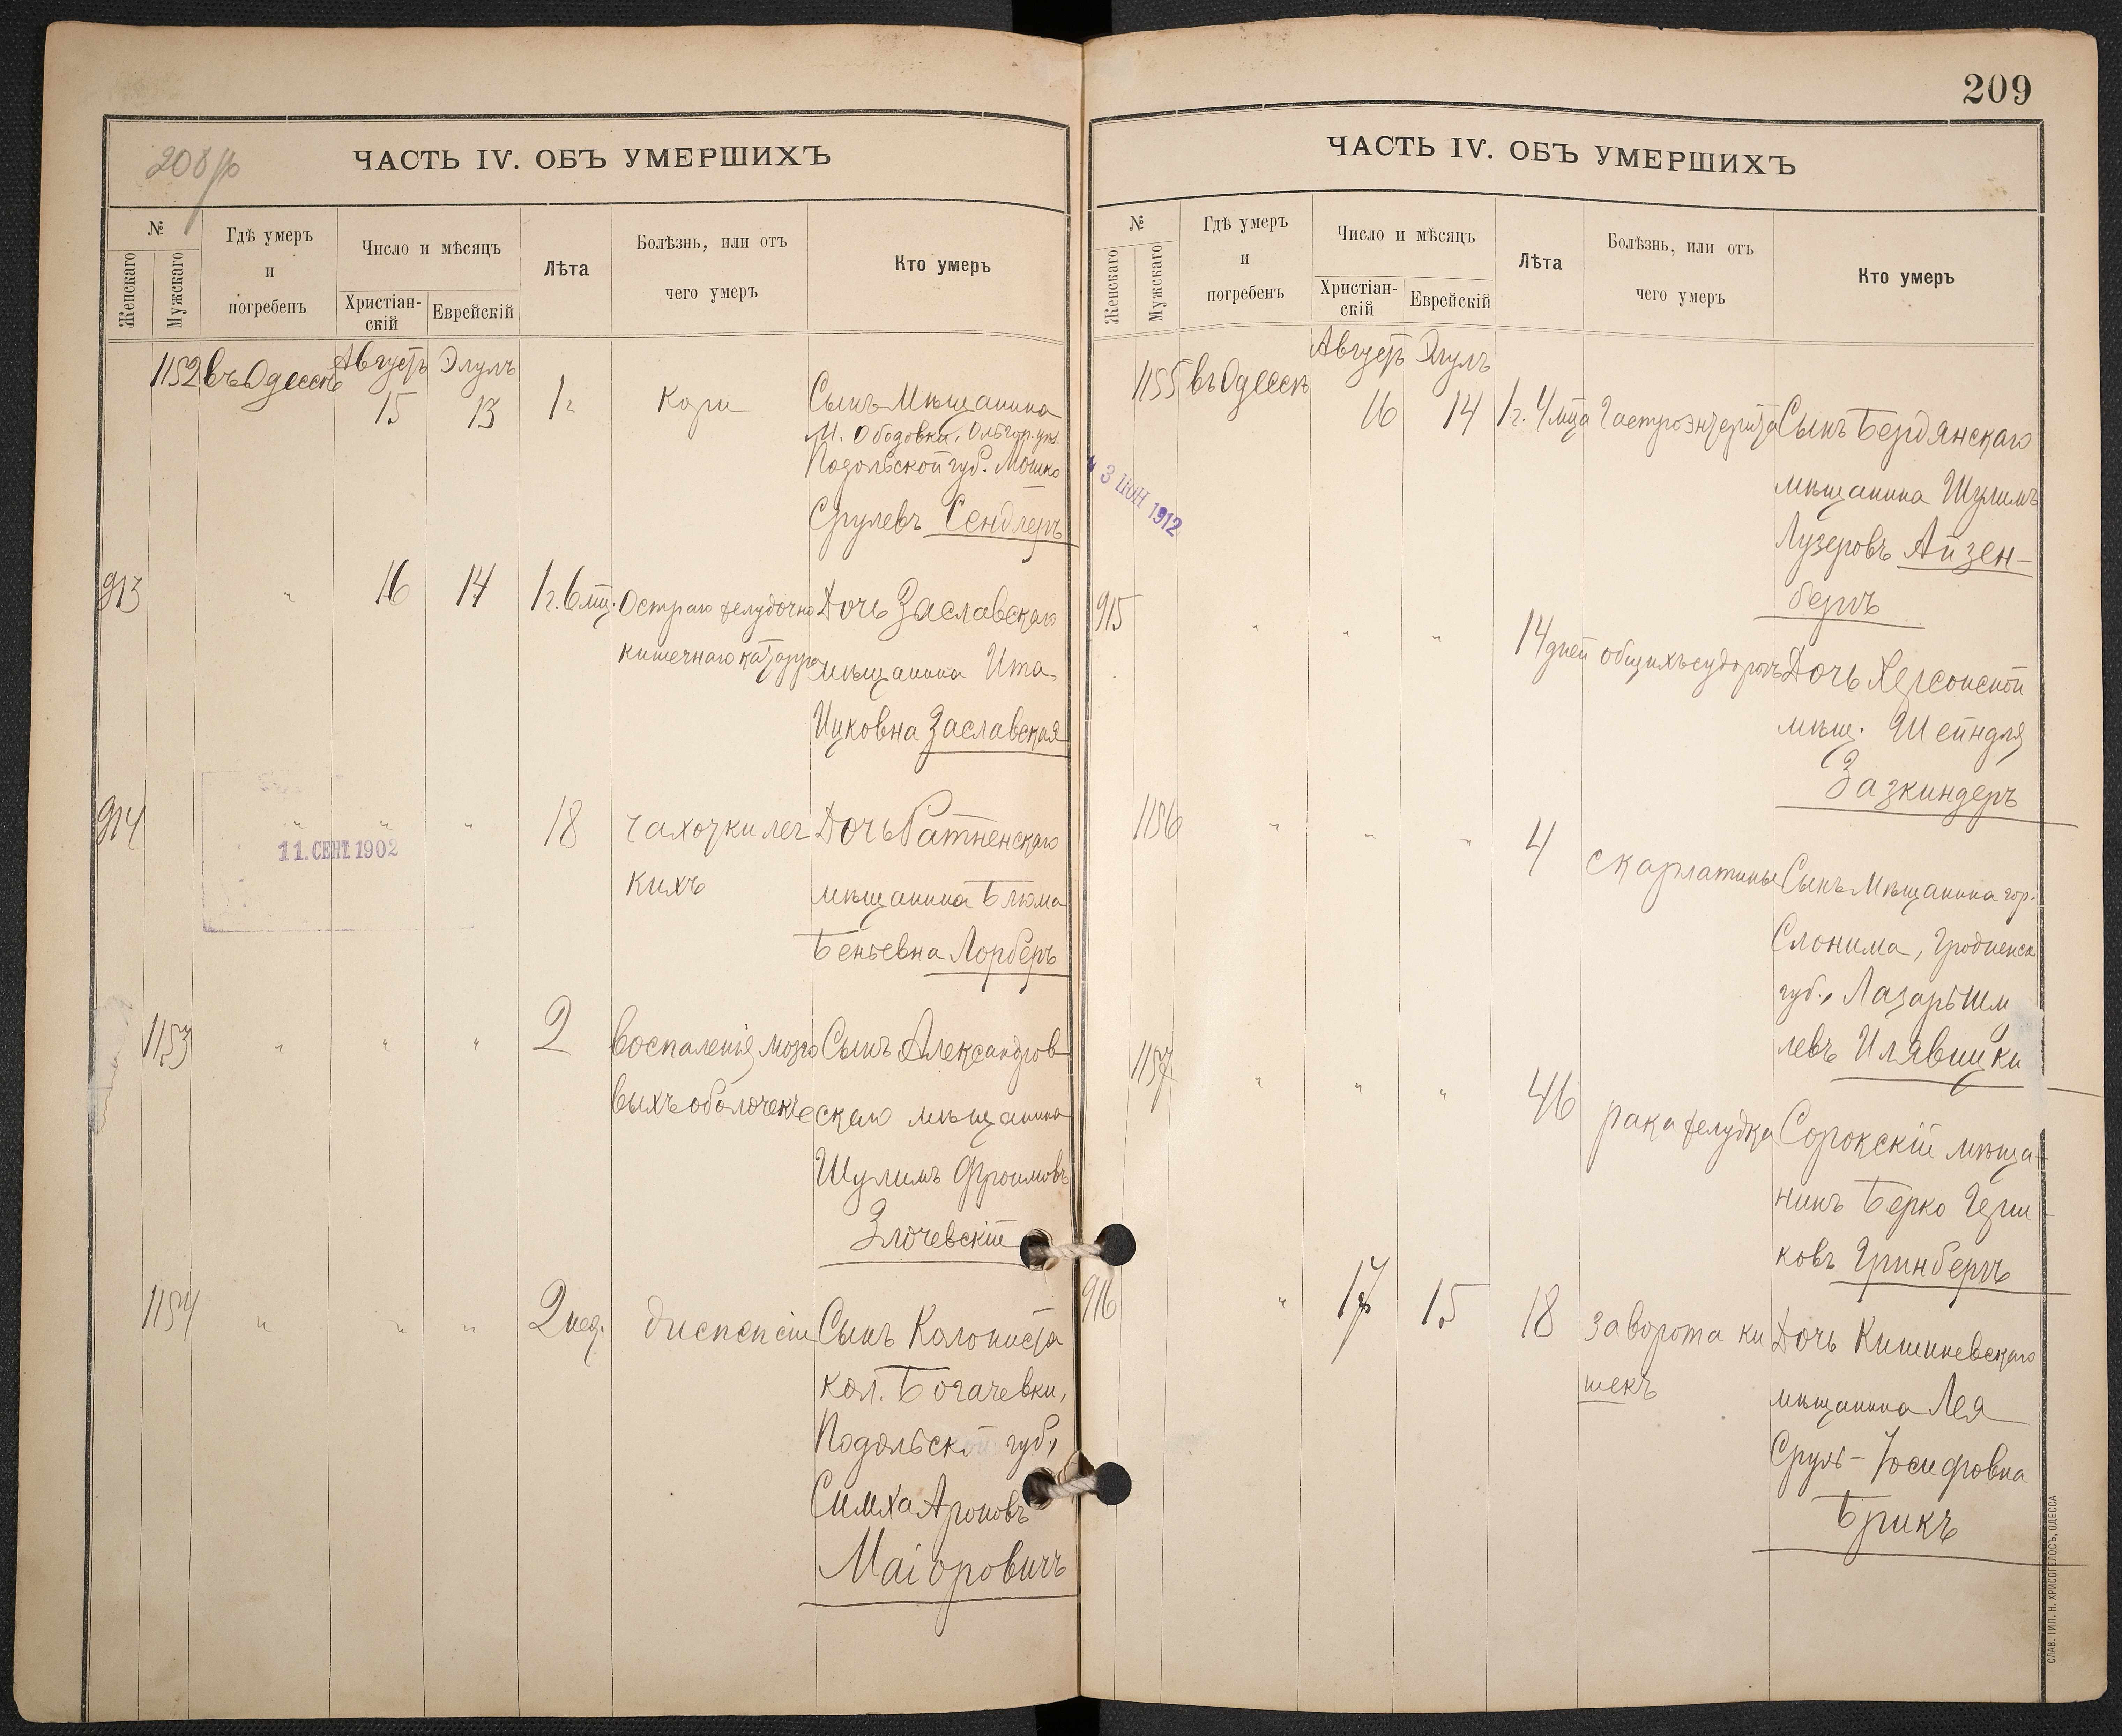 208 об
ЧАСТЬ IV. ОБЪ УМЕРШИХЪ
№
Женскаго
Мужскаго
Гдѣ умеръ
и
погребенъ
Число и мѣсяцъ
Христіан-
скій
Еврейскій
Лѣта
Болѣзнь, или отъ
чего умеръ
Кто умеръ
1152 въ Одессѣ Августъ Элулъ
15 13 1 г. Кори Сынъ Мѣщанина
М. Ободовка, Ольгоп. уѣз.
Подольской губ. Мошко
Срулевъ Сендлеръ
913 " 16 14 1 г. 6 мц. Остраго желудочно Дочь Заславскаго
кишечнаго катарра мѣщанина Ита
Ицковна Заславская
914 " " " 18 чахотки лег Дочь Ратненскаго
кихъ мѣщанина Блюма
Беньевна Лорберъ
11. СЕНТ. 1902
1153 " " " 2 воспаленія мозго Сынъ Александров
выхъ оболочекъ скаго мѣщанина
Шулимъ Фроимовъ
Злочевскій
1154 " " " 2 нед. диспепсіи Сынъ Колониста
кол. Богачевки,
Подольской губ.,
Симха Ароновъ
Маіоровичъ
209
ЧАСТЬ IV. ОБЪ УМЕРШИХЪ
№
Женскаго
Мужскаго
Гдѣ умеръ
и
погребенъ
Число и мѣсяцъ
Христіан-
скій
Еврейскій
Лѣта
Болѣзнь, или отъ
чего умеръ
Кто умеръ
1155 въ Одессѣ Августъ Элулъ
16 14 1 г. 4 мца Гастроэнтерита Сынъ Бердянскаго
мѣщанина Шулимъ
Лузеровъ Айзен-
бергъ
3 ІЮН 1912
915 " " " 14 дней общихъ судорогъ Дочь Херсонской
мѣщ. Шейндля
Зазкиндеръ
1156 " " " 4 скарлатины Сынъ Мѣщанина гор.
Слонима, Гродненск
губ., Лазарь Шм
левъ Илявицки
1157 " " " 46 рака желудка Сорокскій мѣща-
нинъ Берко Герш-
ковъ Гринбергъ
916 " 17 15 18 заворота ки Дочь Кишиневскаго
шекъ мѣщанина Лея
Сруль-Іосифовна
Брикъ
СЛАВ. ТИП. Н. ХРИСОГЕЛОСЪ, ОДЕССА